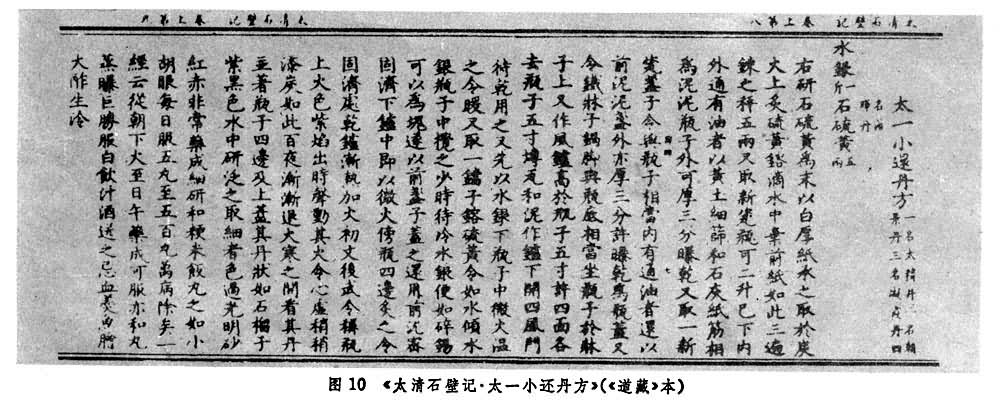 太清石壁記 卷上第八
太一小還丹方 一名太精丹二名朝
景丹三名凝霞丹四
名落
暉丹
水銀一斤 石硫黃五兩
右研石硫黃為末以白厚紙承之取於炭
火上炙硫黃鎔滴水中棄前紙如此三遍
鍊之秤五兩又取新瓷瓶可二升已下內
外通有油者以黃土細篩和石灰紙筋相
為泥泥瓶子外可厚三分曝乾又取一新
瓷盞子合與瓶子相當內有通油者還以
前泥泥盞外亦厚三分許曝乾為瓶蓋又
令鐵牀子鍋脚與瓶底相當坐瓶子於牀
子上又作風爐高於瓶子五寸許四面各
去瓶子五寸塼瓦和泥作爐下開四風門
待乾用之又先以水銀下瓶子中微火溫
之令暖又取一鐺子鎔硫黃令如水傾水
銀瓶子中攪之少時待冷水銀便如碎錫
可以為塊速以前盞子蓋之還用前泥密
固濟下爐中即以微火傍瓶四邊炙之令
固濟處乾爐漸熱加火初文後武令稱瓶
上火色紫焰出時聲動其火令心虛稍稍
漆炭如此百夜漸漸退火寒之開看其丹
並著瓶子四邊及上蓋其丹狀如石榴子
紫黑色水中研泛之取細者色過光明砂
紅赤非常藥成細研和粳米飯丸之如小
胡眼每日服五丸至五百丸萬病除矣一
經云從朝下火至日午藥成可服亦和丸
蒸曝巨勝服白飲汁酒送之忌血羹由膾
大酢生冷
太清石壁記 卷上第九
图 10 《太清石壁记·太一小还丹方》(《道藏》本)